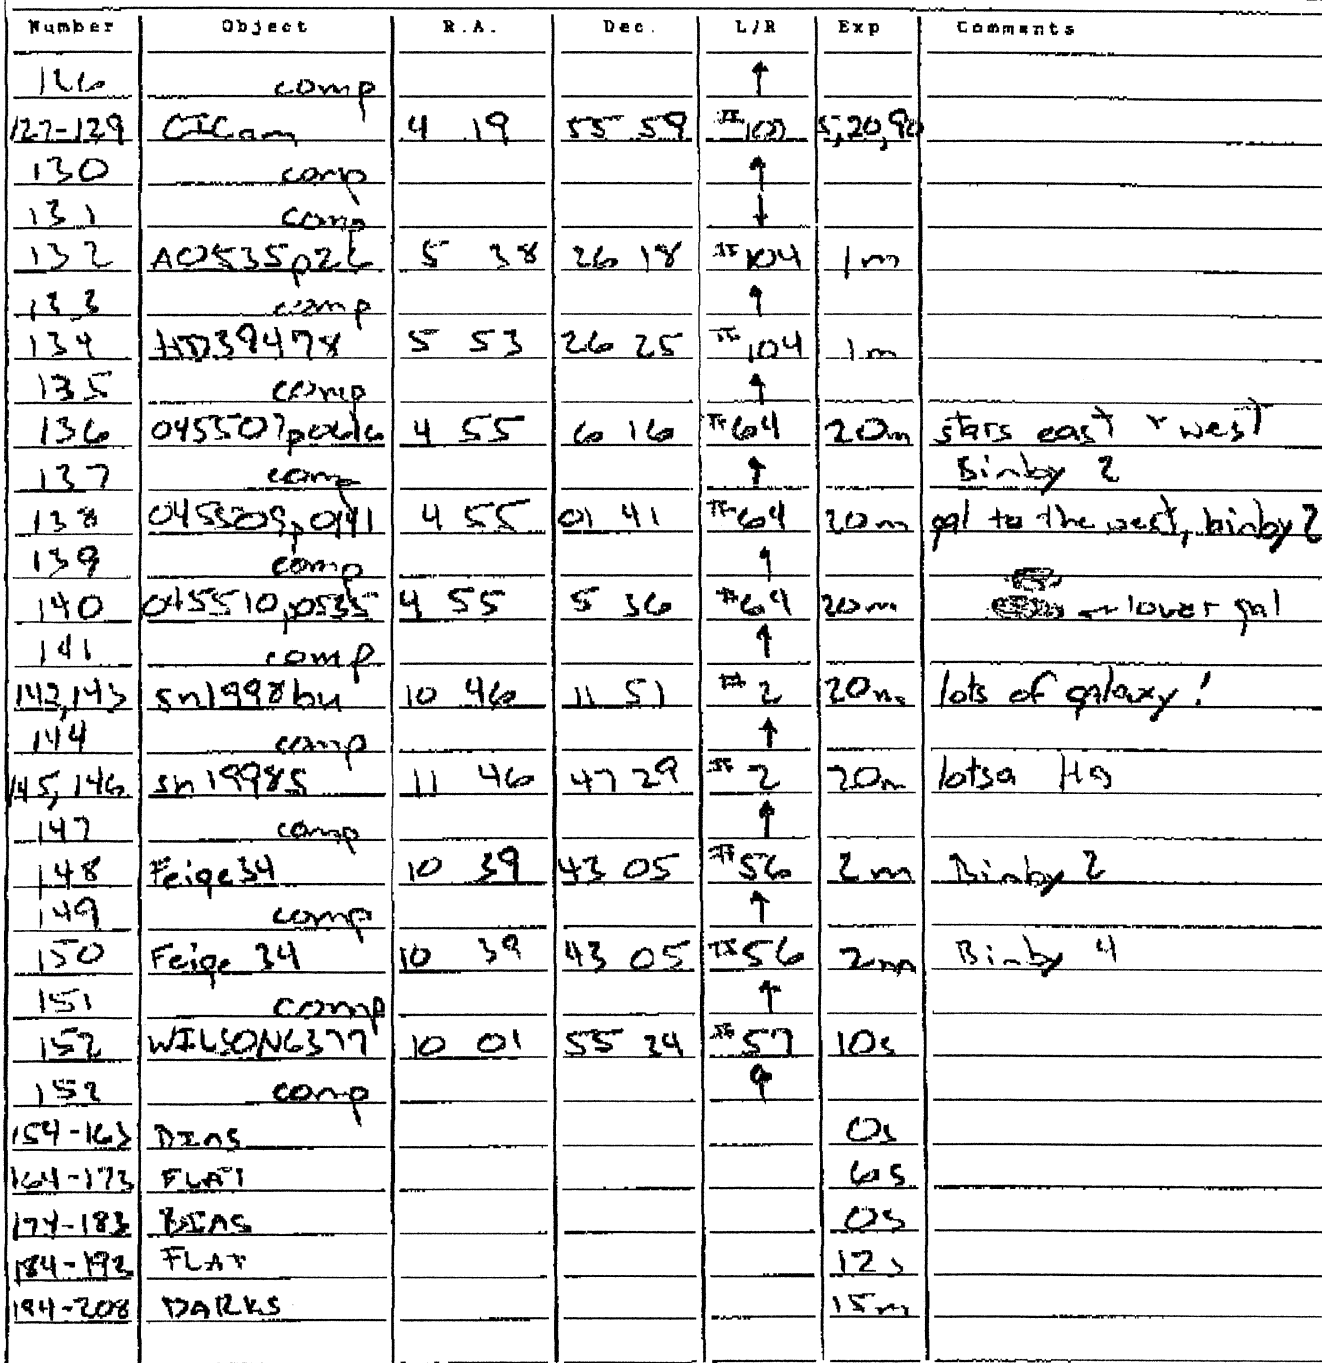 Number Object R.A. Dec. L/R Exp Comments
126 comp ↑
127-129 CICam 4 19 55 59 #103 5,20,90
130 comp ↑
131 comp ↓
132 AO535p26 5 38 26 18 #104 1m
133 comp ↑
134 HD39478 5 53 26 25 #104 1m
135 comp ↑
136 045507p0616 4 55 6 16 #64 20m stars east + west
137 comp ↑ Binby 2
138 045509p0141 4 55 01 41 #64 20m gal to the west, binby 2
139 comp ↑
140 045510p0535 4 55 5 36 #64 20m ← lower gal
141 comp ↑
142,143 sn1998bu 10 46 11 51 #2 20m lots of galaxy!
144 comp ↑
145,146 sn1998S 11 46 47 29 #2 20m lotsa Hα
147 comp ↑
148 Feige34 10 39 43 05 #56 2m Binby 2
149 comp ↑
150 Feige 34 10 39 43 05 #56 2m Binby 4
151 comp ↑
152 WILSON6377 10 01 55 24 #57 10s
152 comp ↑
154-163 BIAS 0s
164-173 FLAT 6s
174-183 BIAS 0s
184-193 FLAT 12s
194-208 DARKS 15m